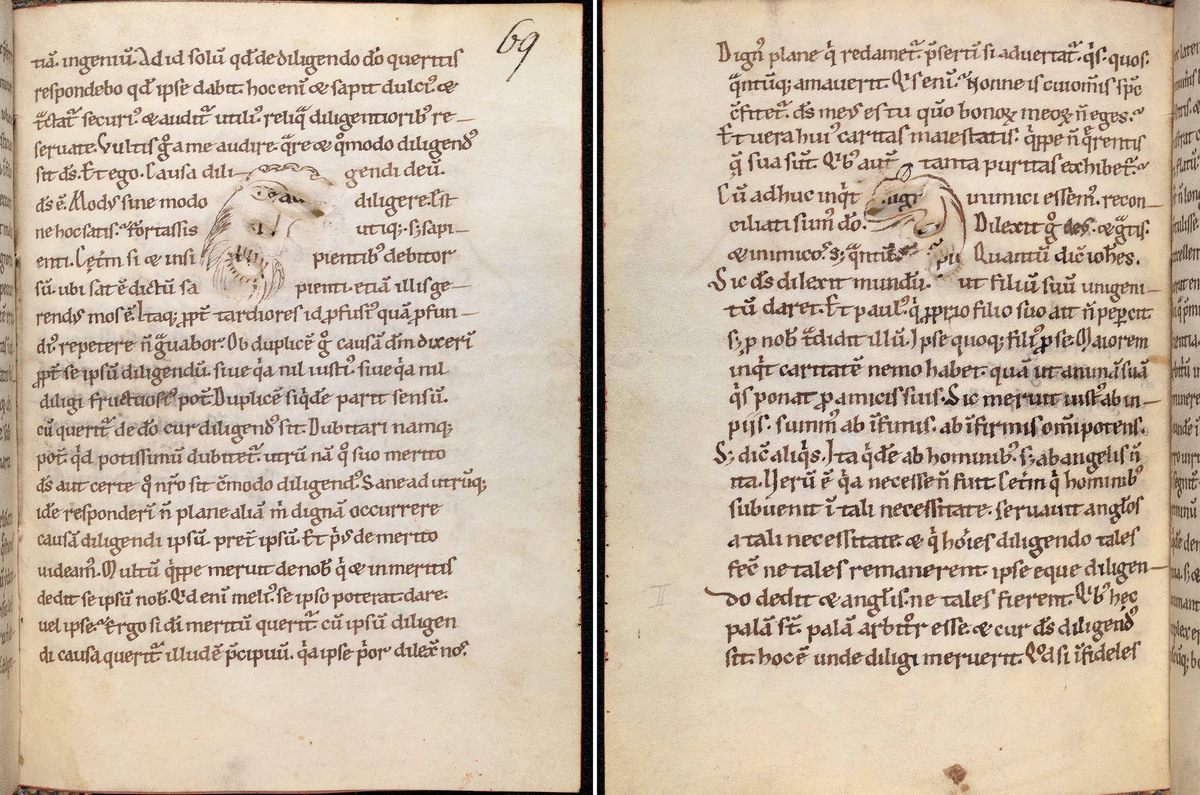 69
tiā. ingeniū. Ad id solū qd̄ de diligendo do᷒ queritis
respondebo qd̄ ipse dabit. hoc enī & sapit dulci᷒. &
tᵃctat᷒ securi᷒. & audit᷒ utili᷒. reliqᵃ diligentiorib᷒ re-
seruate. Vultis gͦ a me audire. qᵃre & qͦmodo diligend᷒
sit ds̄. Et ego. Causa dili gendi deū.
ds̄ ē. Mod᷒ sine modo diligere. Est
ne hoc satis. Fortassis utiq;. s; sapi-
enti. Ceīm si & insi pientib᷒ debitor
sū. ubi sat ē dictū sa pienti. etiā illis ge-
rend᷒ mos ē. Itaq; ꝓpt̄ tardiores id ꝓfusi᷒ quā ꝓfun-
di᷒ repetere ñ gᵃuabor. Ob duplicē gͦ causā dm̄ dixerī
ꝓpt̄ se ipsū diligendū. siue qᵃ nil iusti᷒. siue qᵃ nil
diligi fructuosi᷒ pot̄. Duplicē siqͥdē parit sensū.
cū querit᷒ de do᷒ cur diligend᷒ sit. Dubitari namq;
pot̄. qͥd potissimū dubitet᷒. utrū nā qͦ suo merito
ds̄ aut certe qͦ nr̄o sit cōmodo diligend᷒. Sane ad utrūq;
idē responderī ñ plane aliā m̄ dignā occurrere
causā diligendi ipsū. pret̄ ipsū. Et pͥ᷒ de merito
uideam᷒. Multū qͥppe meruit de nob᷒ qͥ & inmeritis
dedit se ipsū nob᷒. Qͥd enī meli᷒ se ipso poterat dare.
uel ipse. Ergo si dī meritū querit᷒ cū ipsū diligen
di causa querit᷒ illud ē pͥcipuū. qᵃ ipse pͥor dilex̄ no᷒.
Dign᷒ plane qͥ redamet᷒. p̄serti si aduertat᷒. qͥs. quos.
qᵃntūq; amauerit. Qͥs enī. Nonne is cui omīs sp̄c
cōfitet᷒. ds̄ me᷒ es tu qūo bonoꝝ meoꝝ ñ eges.
Et uera hui᷒ caritas maiestatis. qͥppe ñ qͣrentis
qᵃ sua sūt. Qͥb᷒ aut̄ tanta puritas exhibet᷒.
Cū adhuc inqͥt inimici essem᷒. recon-
ciliati sum᷒ do᷒. Dilexit gͦ ds̄. & gᵃtis.
& inimico᷒. s; qᵃntū Quantū dic̄ ioh̄es.
Sic ds̄ dilexit mundū. ut filiū suū unigeni-
tū daret. Et paul᷒. qͥ ꝓprio filio suo ait ñ peꝑcit
s; ꝓ nob᷒ tᵃdidit illū. Ipse quoq; fili᷒ ꝓ se. Maiorem
inqͥt caritatē nemo habet. quā ut animā suā
qͥs ponat ꝓ amicis suis. Sic meruit iust᷒ ab in-
piis. summ᷒ ab īfimis. ab īfirmis omīpotens.
S; dic̄ aliqͥs. Ita qͥdē ab hominib᷒. s; ab angelis ñ
ita. Verū ē qᵃ necesse ñ fuit. Ceīm qͥ hominib᷒
subuenit ī tali necessitate. seruauit angl̄os
a tali necessitate. & qͥ hoīes diligendo tales
fec̄ ne tales remanerent. ipse eque diligen-
do dedit & angl̄is. ne tales fierent. Qͥb᷒ hec
palā st̄. palā arbitͦr esse. & cur ds̄ diligend᷒
sit. hoc ē unde diligi meruerit. Qͦd si īfideles